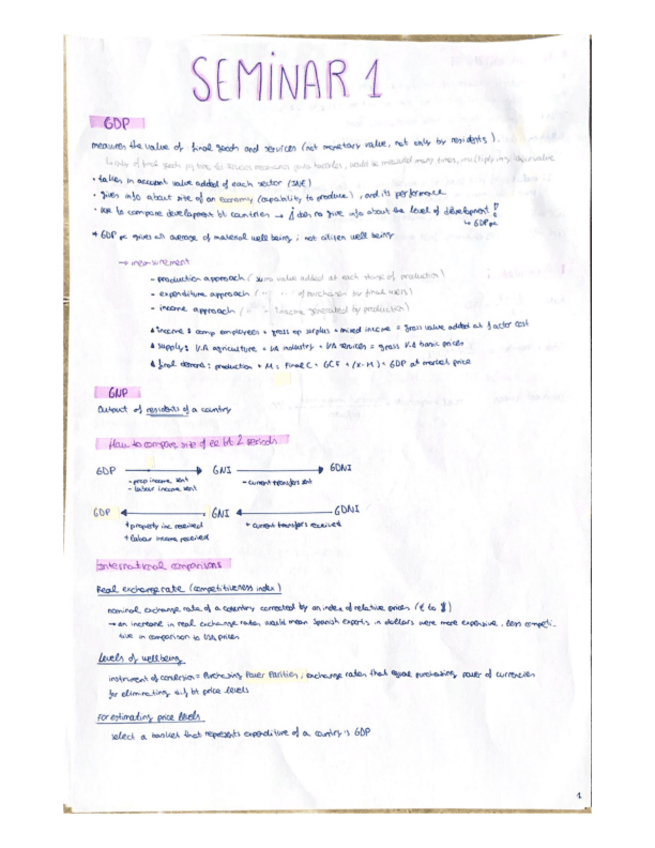 SEMINAR 1
GDP
measures the value of final goods and services (not monetary value, not only by residents).
• takes in account value added of each sector
• gives info about size of an economy (capability to produce), and its performance
• use to compare development bt countries → ¡ does no give info about the level of development !
↳ GDP pc
* GDP pc gives an average of material well being ; not citizen well being
→ measurement
- production approach ( sums value added at each stage of production)
- expenditure approach ( " " of purchases by final users)
- income approach ( " " income generated by production)
income : comp employees + gross op surplus + mixed income = gross value added at factor cost
supply : V.A agriculture + VA industry + VA services = gross V.A basic prices
final demand : production + M = Final C + GCF + (X-M) = GDP at market price
GNP
Output of residents of a country
How to compare size of ec bt 2 periods
GDP → GNI → GDNI
- prop income sent
- labour income sent
- current transfers sent
GDP ← GNI ← GDNI
+ property inc received
+ labour income received
+ current transfers received
International comparisons
Real exchange rate (competitiveness index)
nominal exchange rate of a country corrected by an index of relative prices (€ to $)
→ an increase in real exchange rates would mean Spanish exports in dollars were more expensive, less competi-
tive in comparison to USA prices
Levels of wellbeing
instrument of conversion = Purchasing Power Parities ; exchange rates that equal purchasing power of currencies
for eliminating dif bt price levels
For estimating price levels
select a basket that represents expenditure of a country's GDP
1